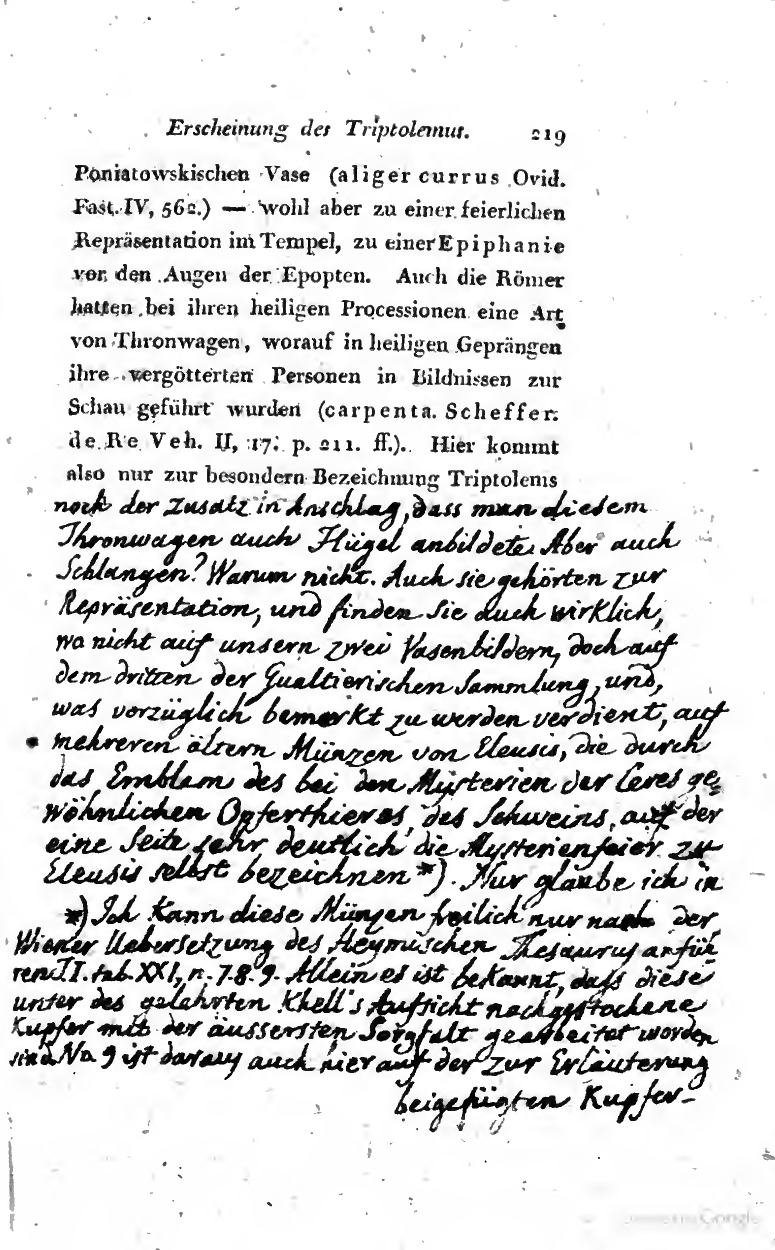 Erscheinung des Triptolemus. 219
Poniatowskischen Vase (aliger currus Ovid.
Fast. IV, 562.) — wohl aber zu einer feierlichen
Repräsentation im Tempel, zu einer Epiphanie
vor den Augen der Epopten. Auch die Römer
hatten bei ihren heiligen Processionen eine Art
von Thronwagen, worauf in heiligen Geprängen
ihre vergötterten Personen in Bildnissen zur
Schau geführt wurden (carpenta. Scheffer.
de Re Veh. II, 17. p. 211. ff.). Hier kommt
also nur zur besondern Bezeichnung Triptolems
noch der Zusatz in Anschlag, dass man diesem
Thronwagen auch Flügel anbildete. Aber auch
Schlangen? Warum nicht. Auch sie gehörten zur
Repräsentation, und finden sie auch wirklich,
wo nicht auf unsern zwei Vasenbildern, doch auf
dem dritten der Gualtierischen Sammlung, und,
was vorzüglich bemerkt zu werden verdient, auf
mehreren ältern Münzen von Eleusis, die durch
das Emblam des bei den Mysterien der Ceres ge-
wöhnlichen Opferthieres, des Schweins, auf der
eine Seite sehr deutlich die Mysterienfeier zu
Eleusis selbst bezeichnen *). Nur glaube ich in
*) Ich kann diese Münzen freilich nur nach der
Wiener Uebersetzung des Heymischen Thesaurus anfüh
ren T.I. tab. XXI, n. 7. 8. 9. Allein es ist bekannt, dass diese
unter des gelahrten Khell's Aufsicht nachgestochene
Kupfer mit der äussersten Sorgfalt gearbeitet worden
sind. No. 9 ist daraus auch hier auf der zur Erläuterung
beigefügten Kupfer-